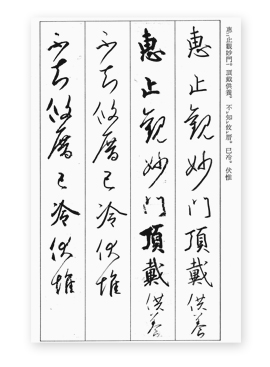 惠㆓止觀妙門㆒。頂戴供養。不㆑知㆑攸㆑厝。已冷。伏惟
惠止觀妙門頂戴供養
惠止觀妙門頂戴供養
不知攸厝已冷伏惟
不知攸厝已冷伏惟